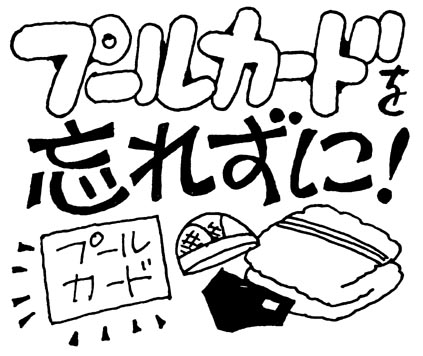 プールカードを
忘れずに!
プール
カード